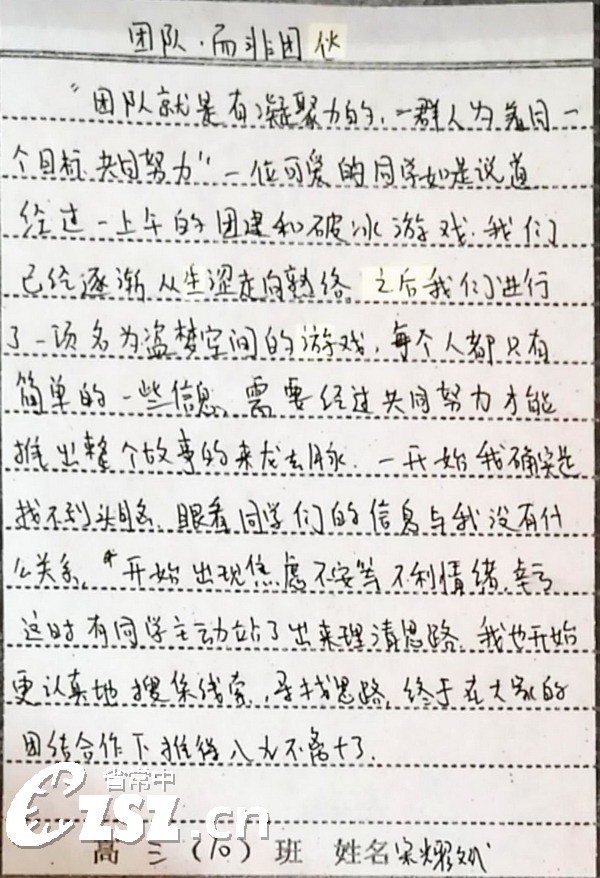 团队·而非团伙
“团队就是有凝聚力的,一群人为着同一
个目标共同努力”一位可爱的同学如是说道
经过一上午的团建和破冰游戏,我们
已经逐渐从生涩走向熟络。之后我们进行
了一项名为盗梦空间的游戏,每个人都只有
简单的一些信息,需要经过共同努力才能
推出整个故事的来龙去脉。一开始我确实是
找不到头目,眼看同学们的信息与我没有什
么关系,开始出现焦虑不安等不利情绪,幸亏
这时有同学主动站了出来理清思路,我也开始
更认真地搜集线索,寻找思路,终于在大家的
团结合作下推得八九不离十了.
省常中
czsz.cn
高三(10)班 姓名宋耀